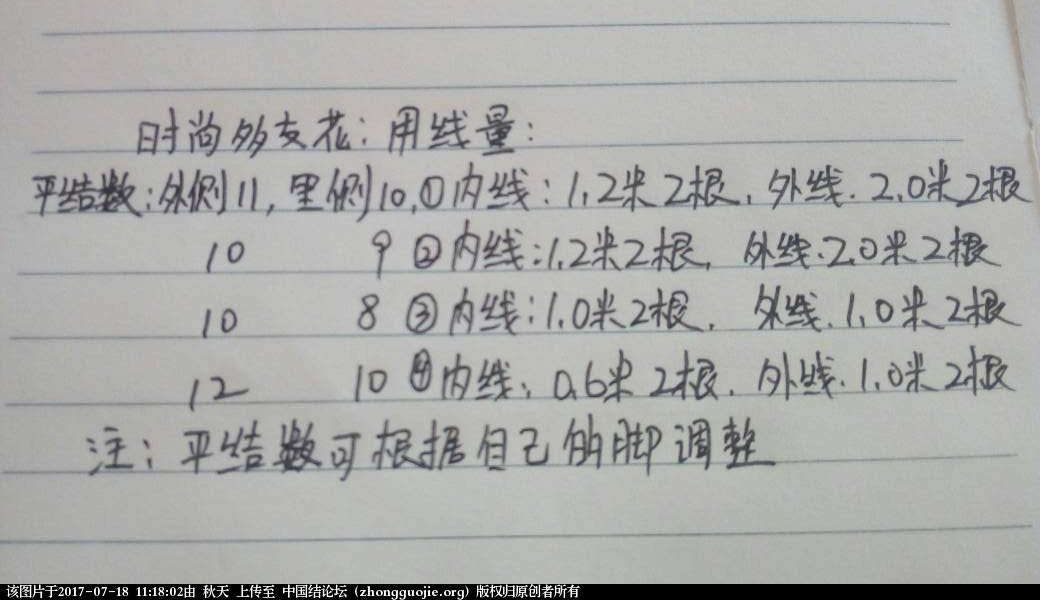 时尚多支花：用线量：
平结数：外侧11，里侧10，①内线：1.2米2根，外线．2.0米2根
10 9 ②内线：1.2米2根，外线．2.0米2根
10 8 ③内线：1.0米2根，外线．1.0米2根
12 10 ④内线：0.6米2根，外线．1.0米2根
注：平结数可根据自己的脚调整
该图片于2017-07-18 11:18:02由 秋天 上传至 中国结论坛 (zhongguojie.org) 版权归原创者所有